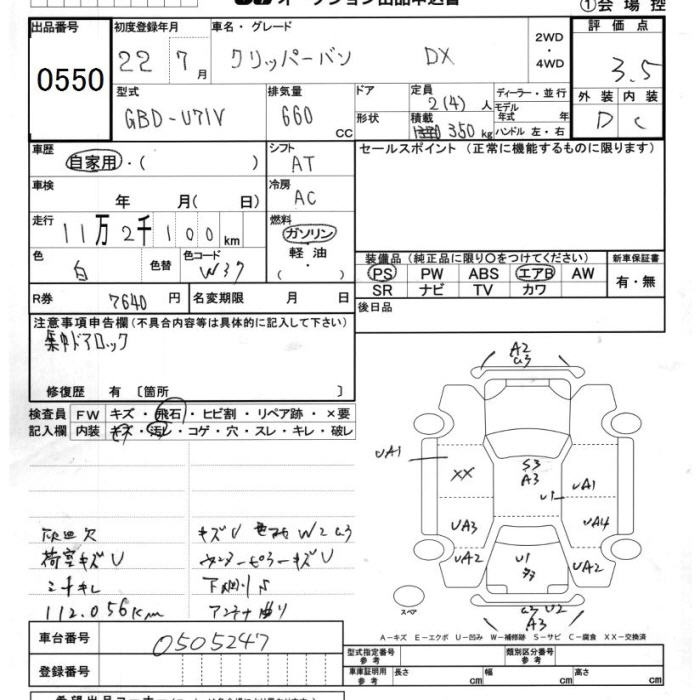 オークション出品申込書
①会場控
出品番号
0550
初度登録年月
22 7月
車名・グレード
クリッパーバン DX
2WD
・4WD
評価点
3.5
外装 内装
D C
型式
GBD-U71V
排気量
660 cc
ドア
形状
定員
2(4)人
積載
350kg
ディーラー・並行
モデル年式 年
ハンドル 左・右
車歴
自家用・( )
シフト
AT
セールスポイント (正常に機能するものに限ります)
車検
年 月( 日)
冷房
AC
走行
11万2千100km
燃料
ガソリン
軽油
・( )
色
白
色替
色コード
W37
装備品(純正品に限り○をつけてください)
PS PW ABS エアB AW
SR ナビ TV カワ
新車保証書
有・無
R券 7640円
名変期限 月 日
後日品
注意事項申告欄(不具合内容等は具体的に記入して下さい)
集中ドアロック
修復歴 有 〔箇所 〕
検査員 FW キズ・飛石・ヒビ割・リペア跡・×要
記入欄 内装 キズ・汚レ・コゲ・穴・スレ・キレ・破レ
灰皿欠
荷室キズU
シートキレ
112.056Km
キズU 色アセ W2
センターピラーキズU
下廻りS
アンテナ曲り
A2
UA1
XX
S3
A3
U1
UA1
UA3
UA4
UA2
U1
UA2
U2
A3
スペア
A-キズ E-エクボ U-凹み W-補修跡 S-サビ C-腐食 XX-交換済
車台番号
0505247
登録番号
型式指定番号 参考
類別区分番号 参考
車庫証明用 参考
長さ cm 幅 cm 高さ cm
希望出品コーナー